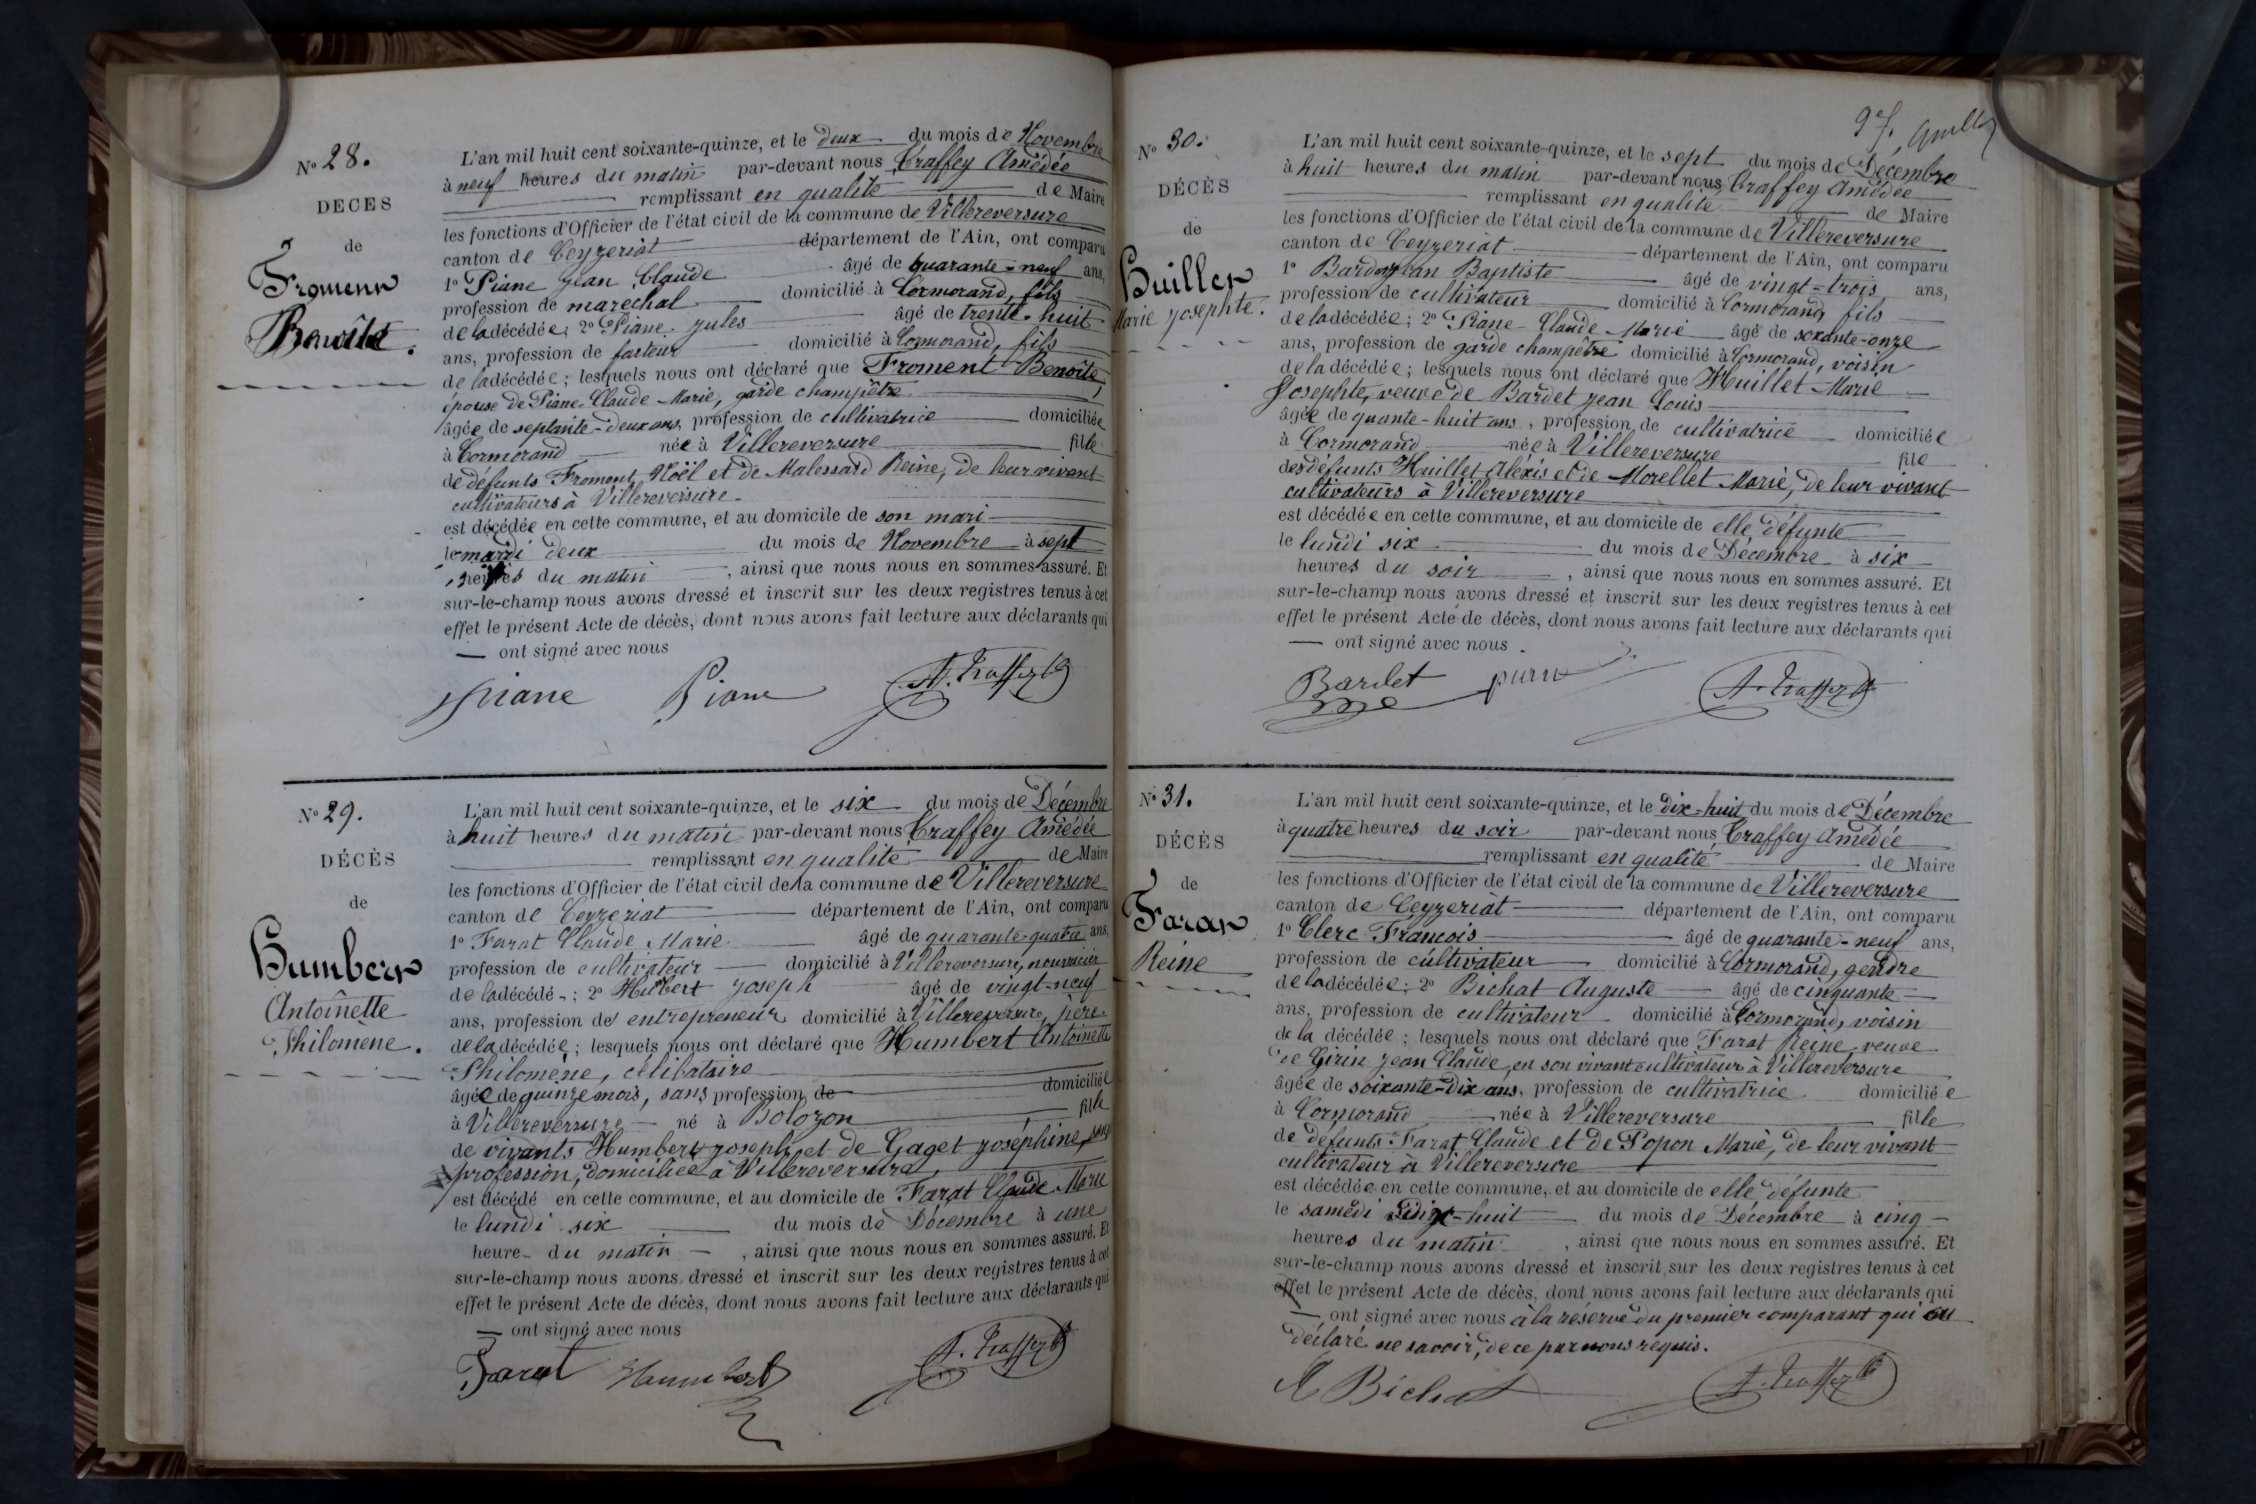 N° 28.
DÉCÈS
de
Froment
Benoîte.
L'an mil huit cent soixante-quinze, et le deux du mois de Novembre
à neuf heures du matin par-devant nous Traffey Amédée
remplissant en qualité de Maire
les fonctions d'Officier de l'état civil de la commune de Villereversure
canton de Ceyzériat département de l'Ain, ont comparu
1° Piane Jean Claude âgé de quarante-neuf ans,
profession de maréchal domicilié à Cormorand, fils
de la décédée; 2° Piane Jules âgé de trente-huit
ans, profession de facteur domicilié à Cormorand, fils
de la décédée; lesquels nous ont déclaré que Froment Benoîte,
épouse de Piane Claude Marie, garde champêtre
âgée de septante-deux ans, profession de cultivatrice domiciliée
à Cormorand née à Villereversure fille
de défunts Froment Noël et de Malessard Reine, de leur vivant
cultivateurs à Villereversure
est décédée en cette commune, et au domicile de son mari
le mardi deux du mois de Novembre à sept
heures du matin, ainsi que nous nous en sommes assuré. Et
sur-le-champ nous avons dressé et inscrit sur les deux registres tenus à cet
effet le présent Acte de décès, dont nous avons fait lecture aux déclarants qui
ont signé avec nous
Piane Piane A. Traffey
N° 29.
DÉCÈS
de
Humbert
Antoinette
Philomène.
L'an mil huit cent soixante-quinze, et le six du mois de Décembre
à huit heures du matin par-devant nous Traffey Amédée
remplissant en qualité de Maire
les fonctions d'Officier de l'état civil de la commune de Villereversure
canton de Ceyzériat département de l'Ain, ont comparu
1° Farat Claude Marie âgé de quarante-quatre ans,
profession de cultivateur domicilié à Villereversure, nourricier
de la décédé; 2° Humbert Joseph âgé de vingt-neuf
ans, profession de entrepreneur domicilié à Villereversure, père
de la décédée; lesquels nous ont déclaré que Humbert Antoinette
Philomène, célibataire
âgée de quinze mois, sans profession de domiciliée
à Villereversure né à Bolozon fille
de vivants Humbert Joseph et de Gaget Joséphine, sans
profession, domiciliée à Villereversure
est décédé en cette commune, et au domicile de Farat Claude Marie
le lundi six du mois de Décembre à une
heure du matin, ainsi que nous nous en sommes assuré. Et
sur-le-champ nous avons dressé et inscrit sur les deux registres tenus à cet
effet le présent Acte de décès, dont nous avons fait lecture aux déclarants qui
ont signé avec nous
Farat Humbert A. Traffey
N° 30.
DÉCÈS
de
Huillet
Marie Josephte.
L'an mil huit cent soixante-quinze, et le sept du mois de Décembre
à huit heures du matin par-devant nous Traffey Amédée
remplissant en qualité de Maire
les fonctions d'Officier de l'état civil de la commune de Villereversure
canton de Ceyzériat département de l'Ain, ont comparu
1° Bardet Jean Baptiste âgé de vingt-trois ans,
profession de cultivateur domicilié à Cormorand, fils
de la décédée; 2° Piane Claude Marie âgé de soixante-onze
ans, profession de garde champêtre domicilié à Cormorand, voisin
de la décédée; lesquels nous ont déclaré que Huillet Marie
Josephte, veuve de Bardet Jean Louis
âgée de quante-huit ans, profession de cultivatrice domiciliée
à Cormorand née à Villereversure fille
des défunts Huillet Alexis et de Morellet Marie, de leur vivant
cultivateurs à Villereversure
est décédée en cette commune, et au domicile de elle défunte
le lundi six du mois de Décembre à six
heures du soir, ainsi que nous nous en sommes assuré. Et
sur-le-champ nous avons dressé et inscrit sur les deux registres tenus à cet
effet le présent Acte de décès, dont nous avons fait lecture aux déclarants qui
ont signé avec nous.
Bardet A. Traffey
N° 31.
DÉCÈS
de
Farat
Reine
L'an mil huit cent soixante-quinze, et le dix-huit du mois de Décembre
à quatre heures du soir par-devant nous Traffey Amédée
remplissant en qualité de Maire
les fonctions d'Officier de l'état civil de la commune de Villereversure
canton de Ceyzériat département de l'Ain, ont comparu
1° Clerc François âgé de quarante-neuf ans,
profession de cultivateur domicilié à Cormorand, gendre
de la décédée; 2° Bichat Auguste âgé de cinquante
ans, profession de cultivateur domicilié à Cormorand, voisin
de la décédée; lesquels nous ont déclaré que Farat Reine veuve
de Girin Jean Claude, en son vivant cultivateur à Villereversure
âgée de soixante-dix ans, profession de cultivatrice domiciliée
à Cormorand née à Villereversure fille
de défunts Farat Claude et de Popon Marie, de leur vivant
cultivateur à Villereversure
est décédée en cette commune, et au domicile de elle défunte
le samedi dix-huit du mois de Décembre à cinq
heures du matin, ainsi que nous nous en sommes assuré. Et
sur-le-champ nous avons dressé et inscrit sur les deux registres tenus à cet
effet le présent Acte de décès, dont nous avons fait lecture aux déclarants qui
ont signé avec nous à la réserve du premier comparant qui a
déclaré ne savoir, de ce par nous requis.
A Bichat A. Traffey